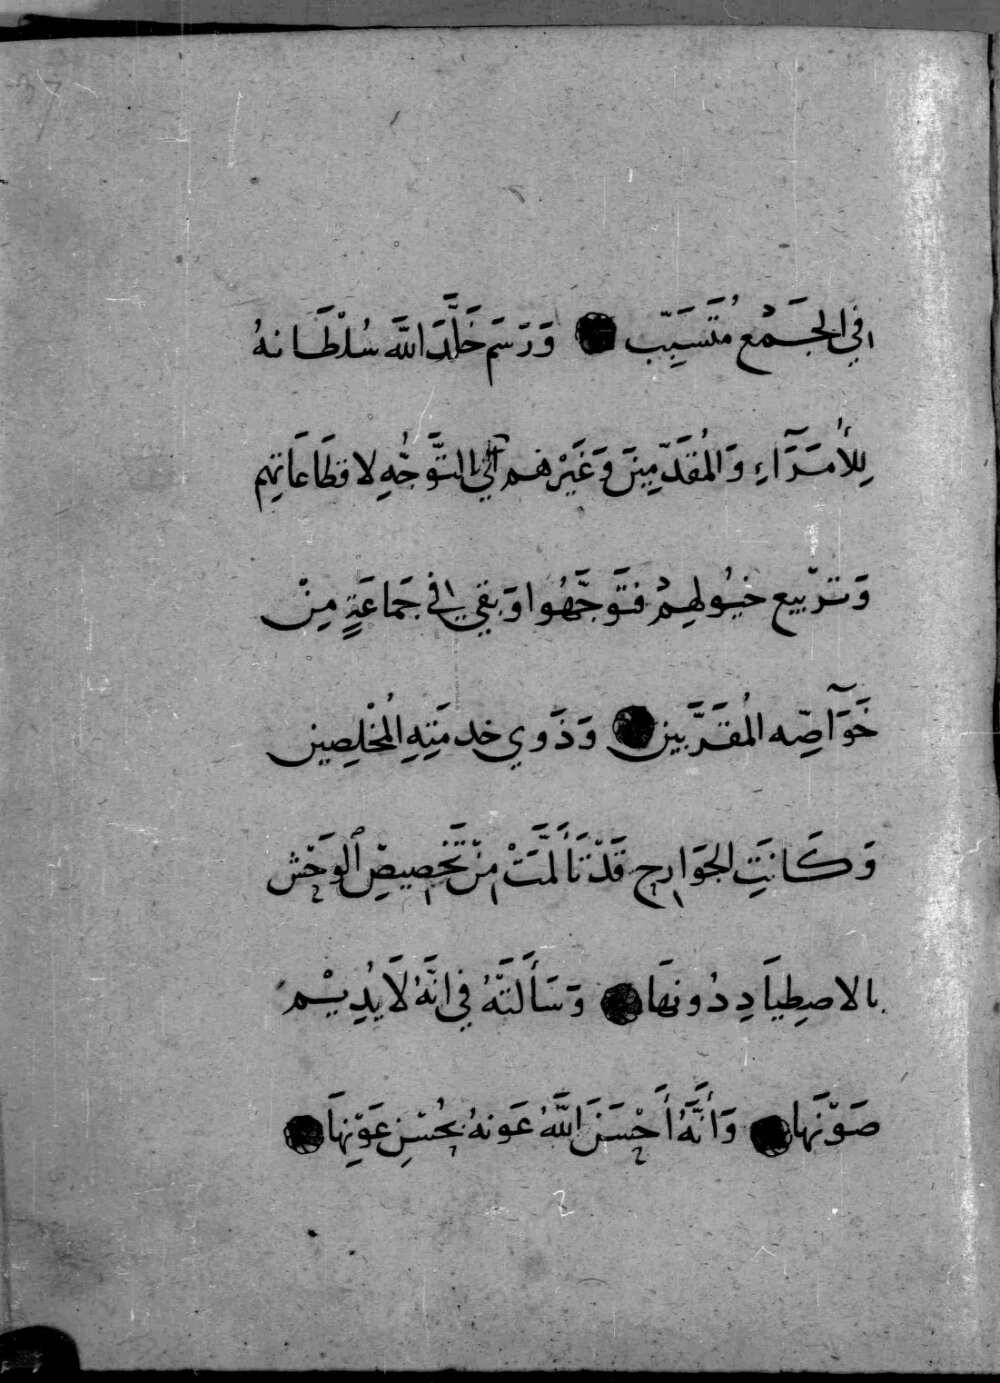 فِي الجَمْعِ مُتَسَبِّب ● وَرَسَمَ خَلَّدَ اللَّه سُلْطَانهُ
لِلأُمَرَآءِ وَالمُقَدَّمِينَ وَغَيْرهم فِي التَّوَجُّهِ لاقطَاعَاتِهِم
وَتَرْبِيع خيُولِهِمْ فتَوَجَّهُوا وَبَقِي فِي جَمَاعَةٍ مِنْ
خَوَآصِّه المُقَرَّبين ● وَذَوِي خدمَتِهِ المُخْلِصِين
وَكَانَتِ الجَوَارِح قَدْ تَأَلَّمَتْ مِنْ تَخْصِيصِ الوَحْش
بالاصطِيَادِ دُونهَا ● وَسَأَلَتْهُ فِي انَّهُ لَا يُدِيْم
صَوْنَهَا ● وَأَنَّهُ أَحْسَنَ اللَّهُ عَونهُ يُحْسِن عَوْنِهَا ●